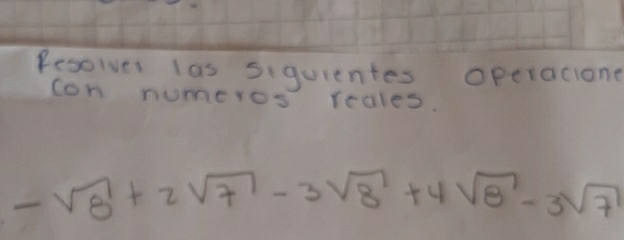 Resolver las siguientes operacione
con numeros reales.
-√8 + 2√7 - 3√8 + 4√8 - 3√7